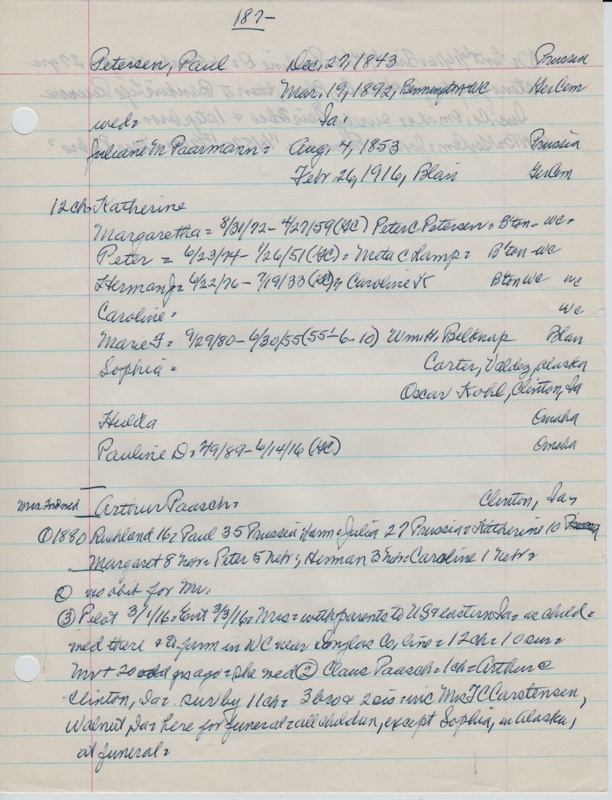 187-
Petersen, Paul Dec, 27, 1843 Prussia
Mar. 19, 1892, Bennington WC Ger Cem
wed= Ia.
Juliane M Paarmann= Aug, 4, 1853 Prussia
Febr. 26, 1916, Blair Ger Cem
12 ch= Katherine
Margaretha = 8/31/72 - 4/27/59 (GC) Peter C Petersen, B'ton - wc.
Peter = 6/23/74 - 1/26/51 (GC) = Meta C Lamp = B'ton - wc
Herman J= 6/22/76 - 7/19/33 (GC); Caroline K B'ton wc wc
Caroline = wc
Marie F= 9/29/80 - 6/30/55 (55 1-6-10) Wm H. Belknap Blair
Sophia = Carter, Valdez, Alaska
Oscar Kohl, Clinton, Ia
Hulda Omaha
Pauline D= 2/9/89 - 6/14/16 (GC) Omaha
Mrs 2nd med Arthur Paasch= Clinton, Ia,
① 1880 Richland 16= Paul 35 Prussia Farm= Julia 27 Prussia= Katherine 10
Margaret 8 Nebr= Peter 5 Nebr; Herman 3 Nebr= Caroline 1 Nebr=
② no obit for Mr.
③ Pilot 3/1/16= Ent 3/3/16= Mrs= with parents to US & eastern Ia= as child=
med there & to farm in WC near Douglas Co, line= 12 ch= 10 sur=
Mr + 20 odd yrs ago= she med ② Claus Paasch= 1 ch= Arthur @
Clinton, Ia= sur by 11 ch= 3 bro & 2 sis= inc Mrs TC Carstensen,
Walnut, Ia= here for funeral= all children, except Sophia, in Alaska,
at funeral=